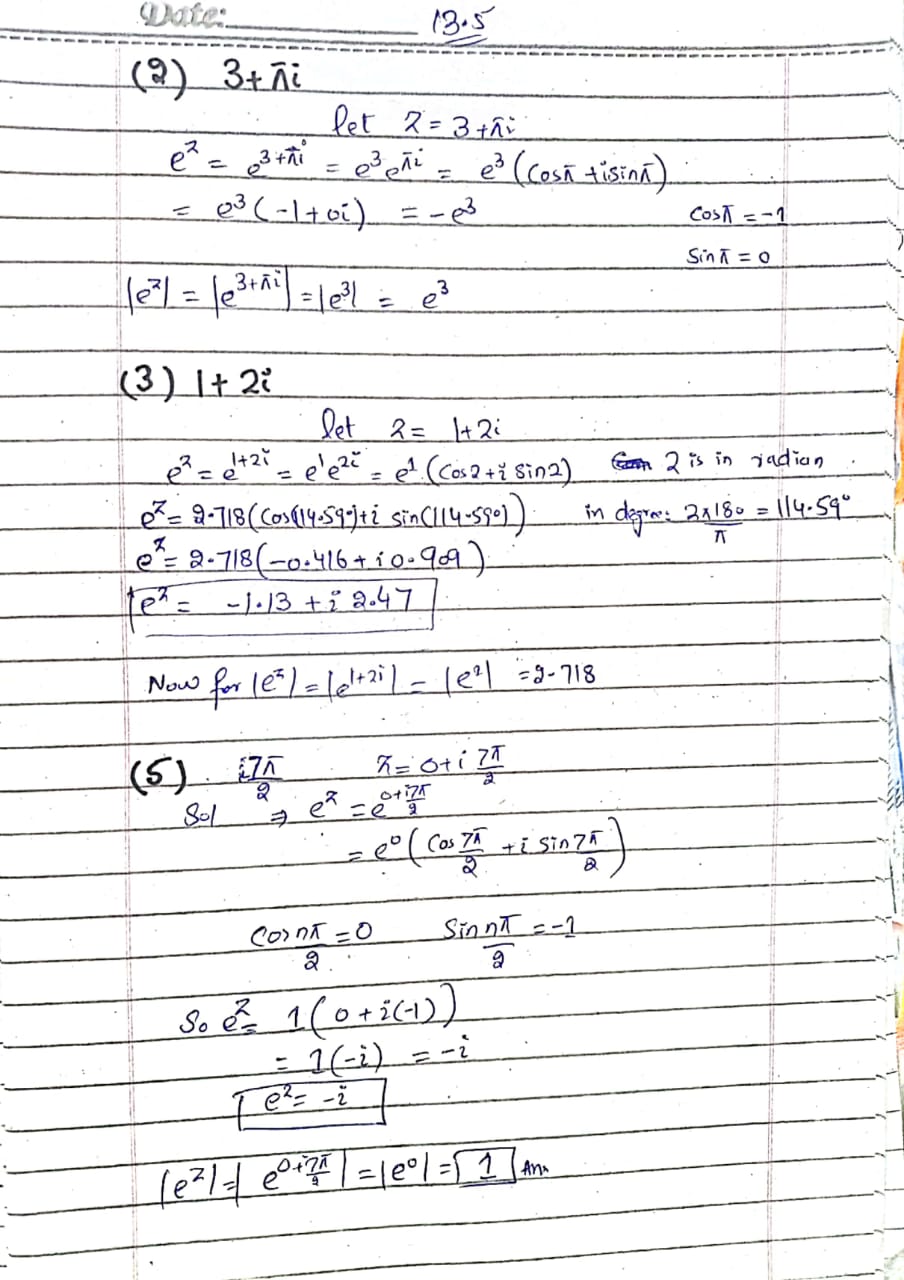 Date: 13.5
(2) 3+πi
let z = 3+πi
e^z = e^{3+πi} = e^3 e^{πi} = e^3 (Cosπ + i sinπ)
= e^3 (-1+0i) = -e^3 Cosπ = -1
Sinπ = 0
|e^z| = |e^{3+πi}| = |e^3| = e^3
(3) 1+2i
let z = 1+2i
e^z = e^{1+2i} = e^1 e^{2i} = e^1 (Cos2+i Sin2) 2 is in radian
e^z = 2.718(Cos(114.59°)+i sin(114.59°)) in degree: 2×180/π = 114.59°
e^z = 2.718(-0.416 + i 0.909)
e^z = -1.13 + i 2.47
Now for |e^z| = |e^{1+2i}| = |e^1| = 2.718
(5) i7π/2 z = 0+i 7π/2
Sol ⇒ e^z = e^{0+i7π/2}
= e^0 (Cos 7π/2 + i Sin 7π/2)
Cos nπ/2 = 0 Sin nπ/2 = -1
So e^z = 1(0+i(-1))
= 1(-i) = -i
e^z = -i
|e^z| = |e^{0+i7π/2}| = |e^0| = 1 Ans